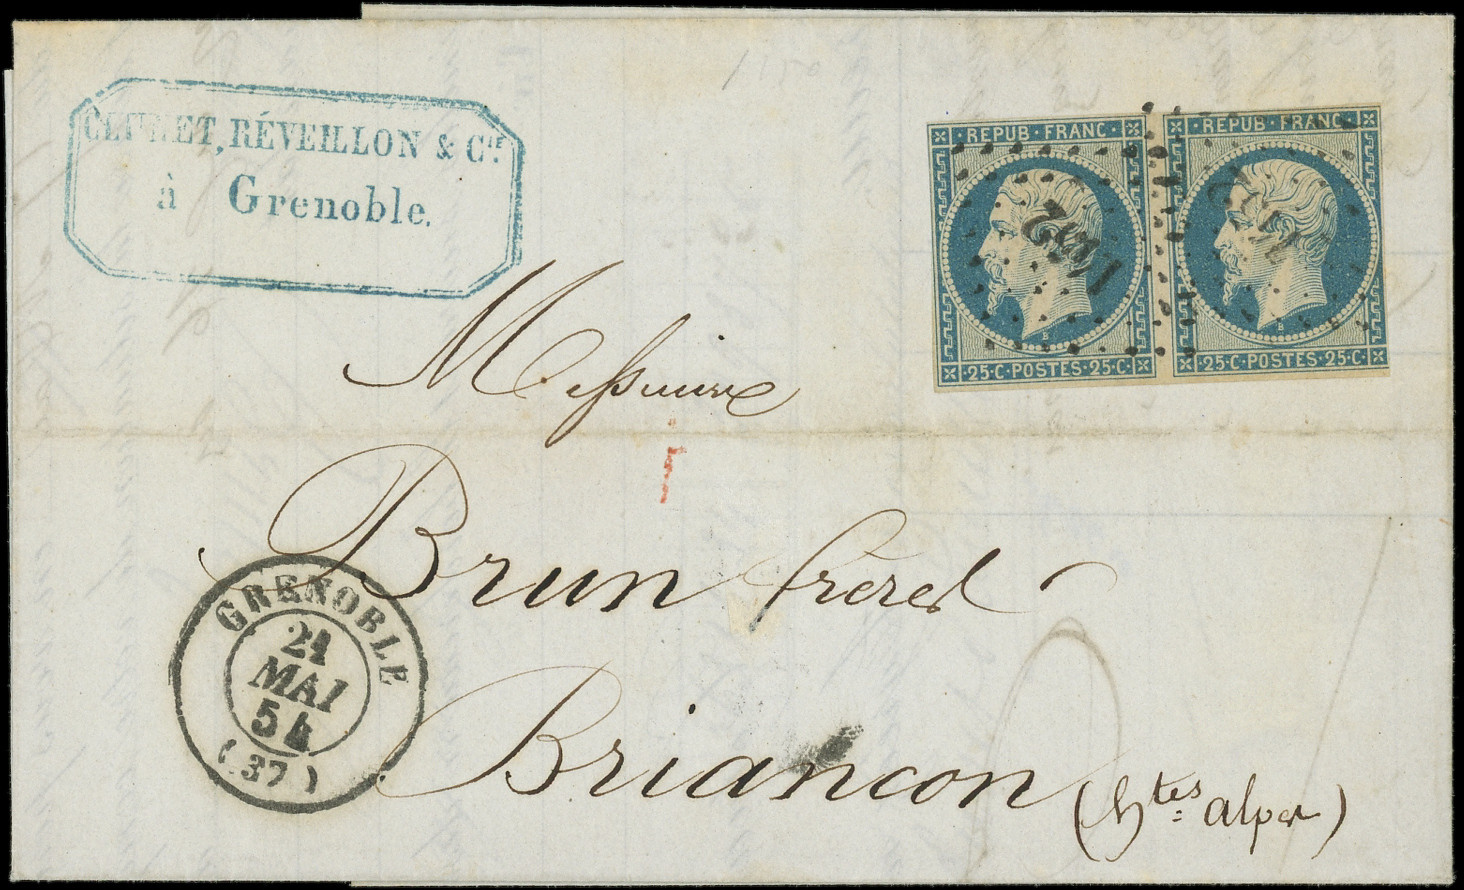 RÉVEILLON & Cie
à Grenoble.
REPUB·FRANC·
25·C·POSTES·25·C·
B
1652
REPUB·FRANC·
25·C·POSTES·25·C·
B
Messieurs
Brun frères
Briançon (htes alpes)
GRENOBLE
21
MAI
54
(37)